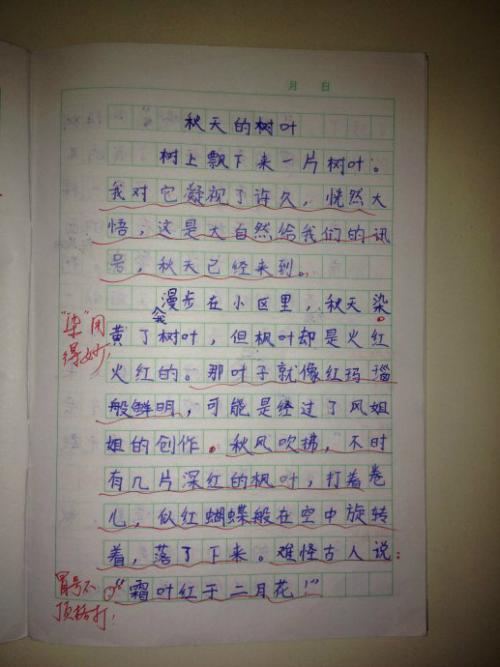 月 日
秋天的树叶
树上飘下来一片树叶。
我对它凝视了许久，恍然大
悟，这是大自然给我们的讯
号，秋天已经来到。
漫步在小区里，秋天染
黄了树叶，但枫叶却是火红
火红的。那叶子就像红玛瑙
般鲜明，可能是经过了风姐
姐的创作。秋风吹拂，不时
有几片深红的枫叶，打着卷
儿，似红蝴蝶般在空中旋转
着，落了下来。难怪古人说：
“霜叶红于二月花！”
“染”用
得妙！
冒号不
顶格打！